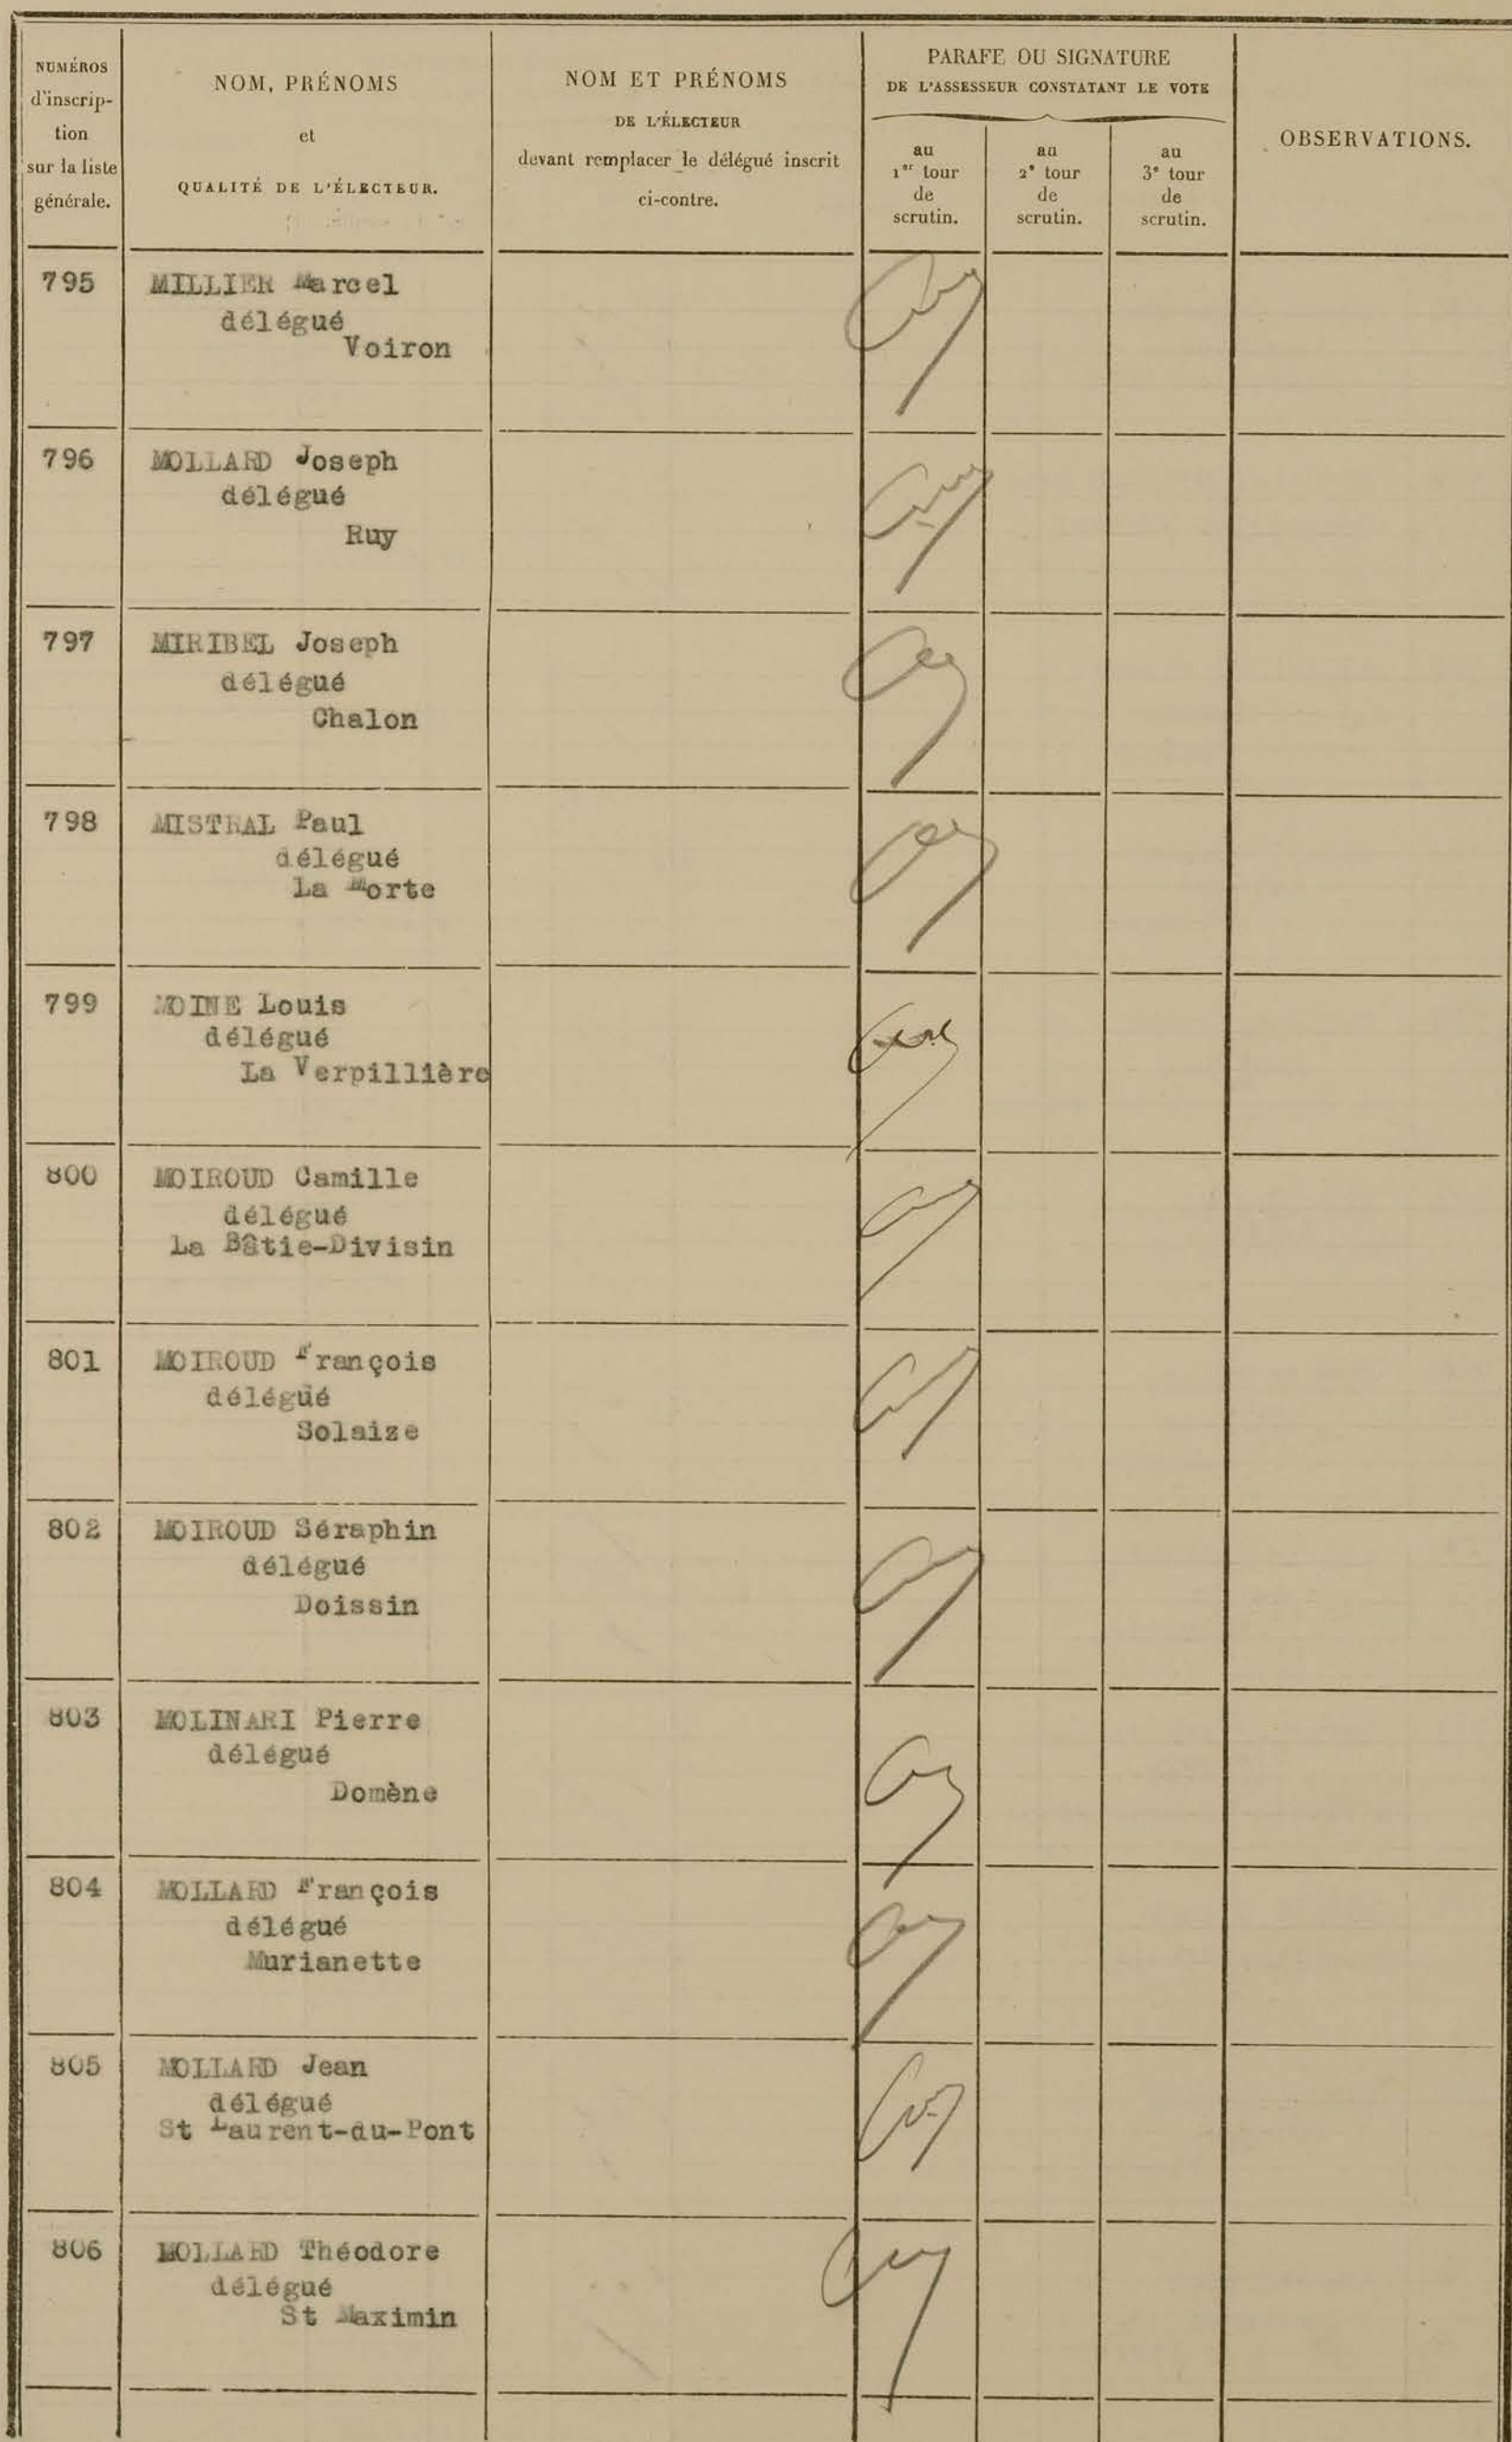 NUMÉROS
d'inscrip-
tion
sur la liste
générale.
NOM, PRÉNOMS
et
QUALITÉ DE L'ÉLECTEUR.
NOM ET PRÉNOMS
DE L'ÉLECTEUR
devant remplacer le délégué inscrit
ci-contre.
PARAFE OU SIGNATURE
DE L'ASSESSEUR CONSTATANT LE VOTE
au
1er tour
de
scrutin.
au
2e tour
de
scrutin.
au
3e tour
de
scrutin.
OBSERVATIONS.
795 MILLIER Marcel
délégué
Voiron
796 MOLLARD Joseph
délégué
Ruy
797 MIRIBEL Joseph
délégué
Chalon
798 MISTRAL Paul
délégué
La Morte
799 MOINE Louis
délégué
La Verpillière
800 MOIROUD Camille
délégué
La Bâtie-Divisin
801 MOIROUD François
délégué
Solaize
802 MOIROUD Séraphin
délégué
Doissin
803 MOLINARI Pierre
délégué
Domène
804 MOLLARD François
délégué
Murianette
805 MOLLARD Jean
délégué
St Laurent-du-Pont
806 MOLLARD Théodore
délégué
St Maximin